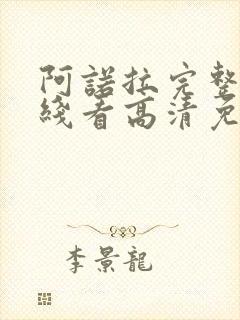 阿諾拉完整
綫看高清免
李景龍